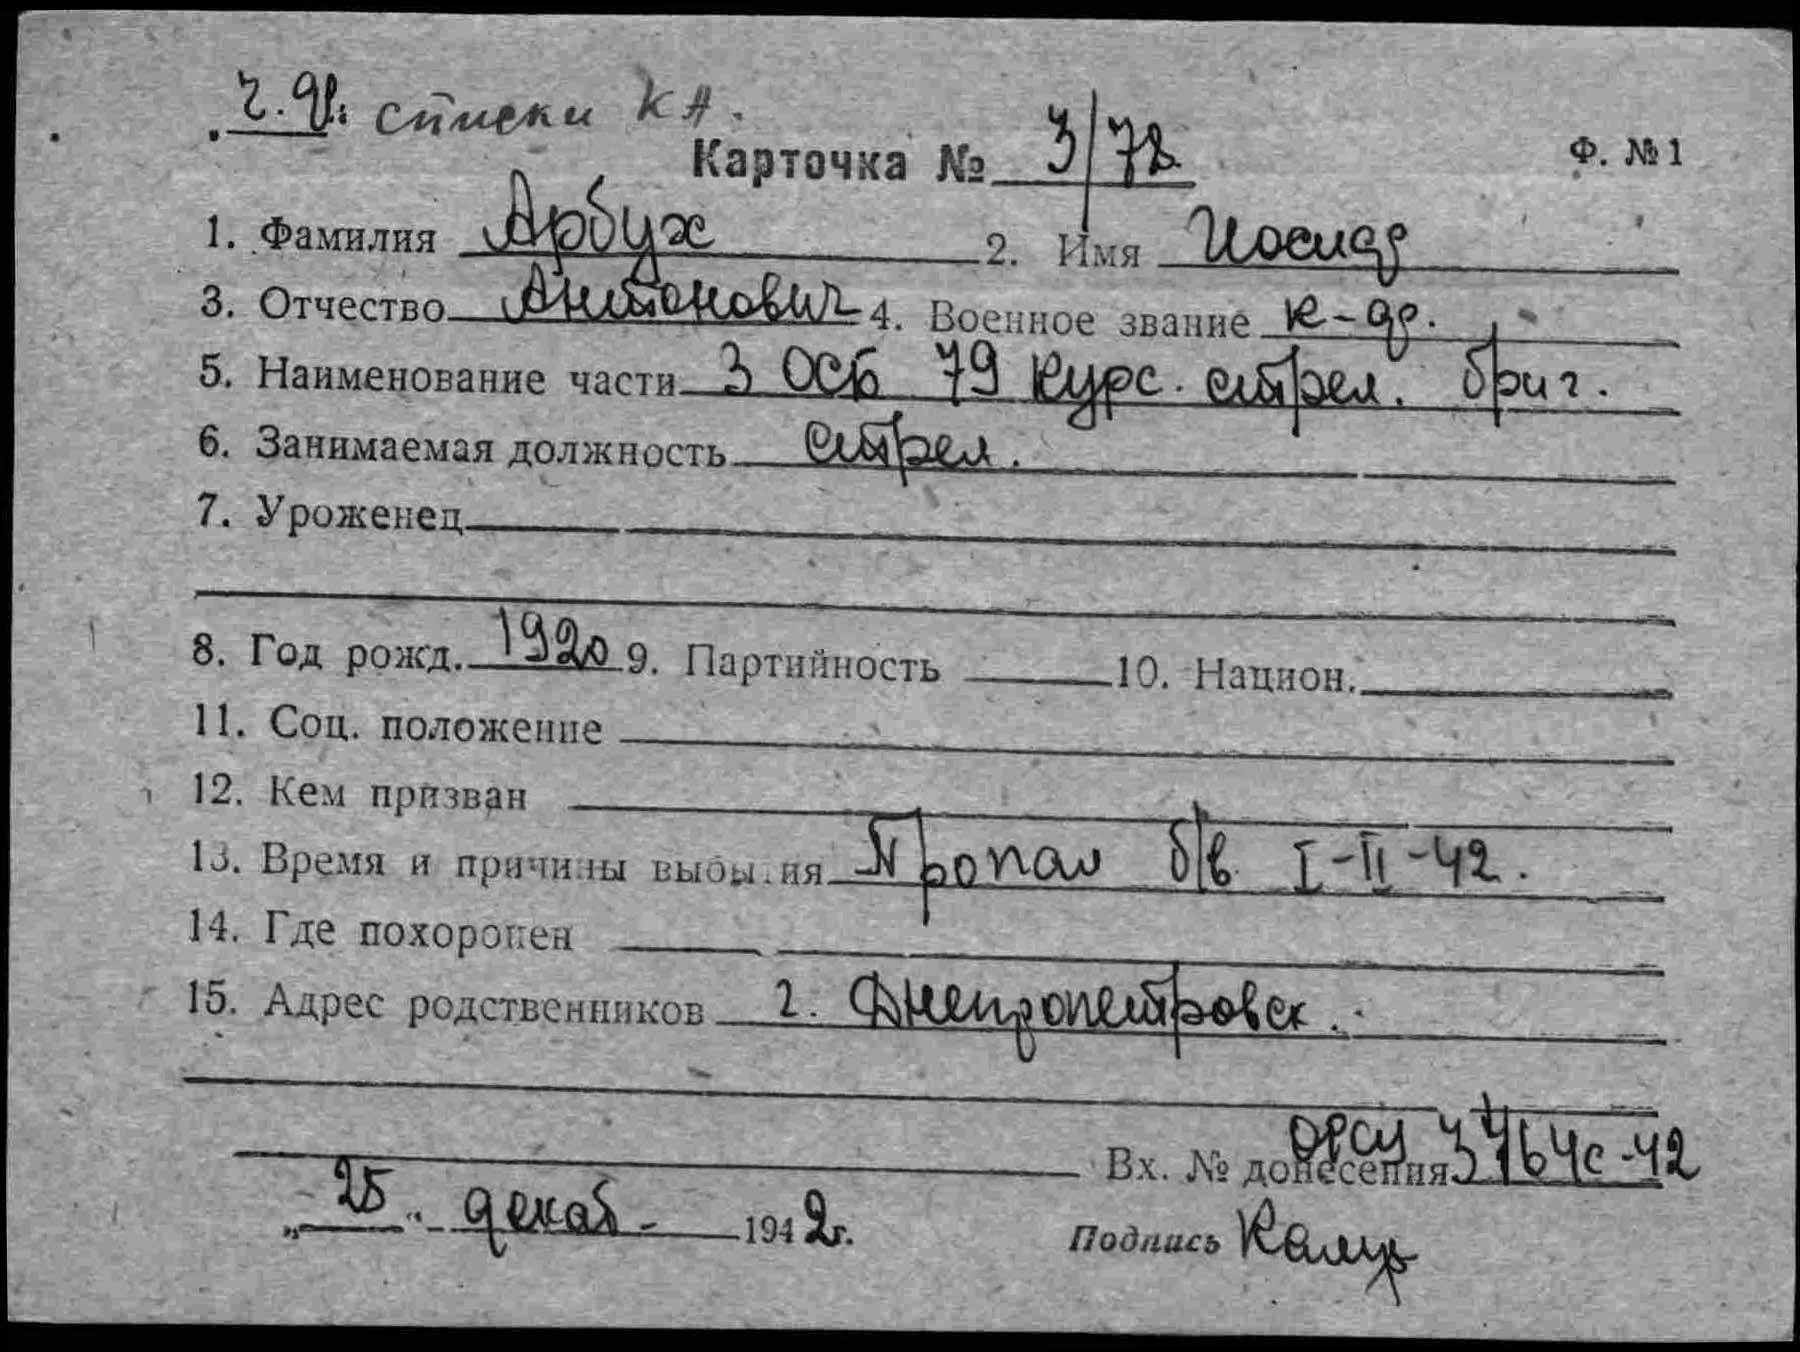 ч. ф. списки КА.
Карточка № 3/78 Ф. № 1
1. Фамилия Арбуз 2. Имя Иосиф
3. Отчество Антонович 4. Военное звание к-ф.
5. Наименование части 3 ОСБ 79 курс. стрел. бриг.
6. Занимаемая должность стрел.
7. Уроженец
8. Год рожд. 1920 9. Партийность 10. Национ.
11. Соц. положение
12. Кем призван
13. Время и причины выбытия Пропал б/в I-II-42.
14. Где похоронен
15. Адрес родственников г. Днепропетровск.
Вх. № донесения 3764с-42
„25" декаб- 1942г. Подпись